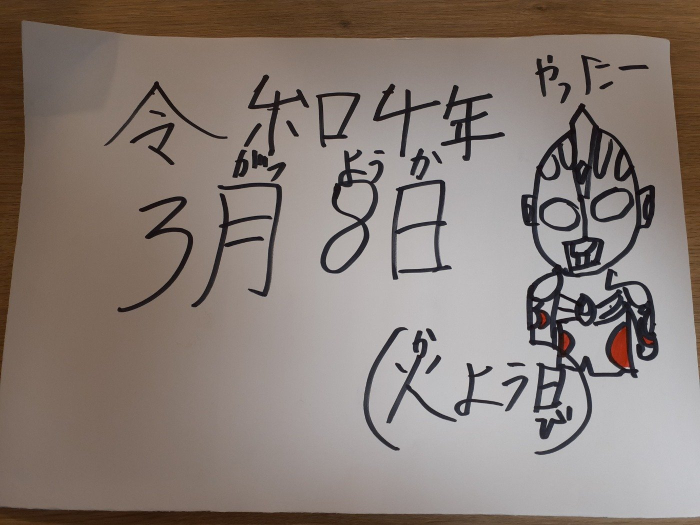 やったー
令和4年
がつ ようか
3月8日
か
(火よう日)
び